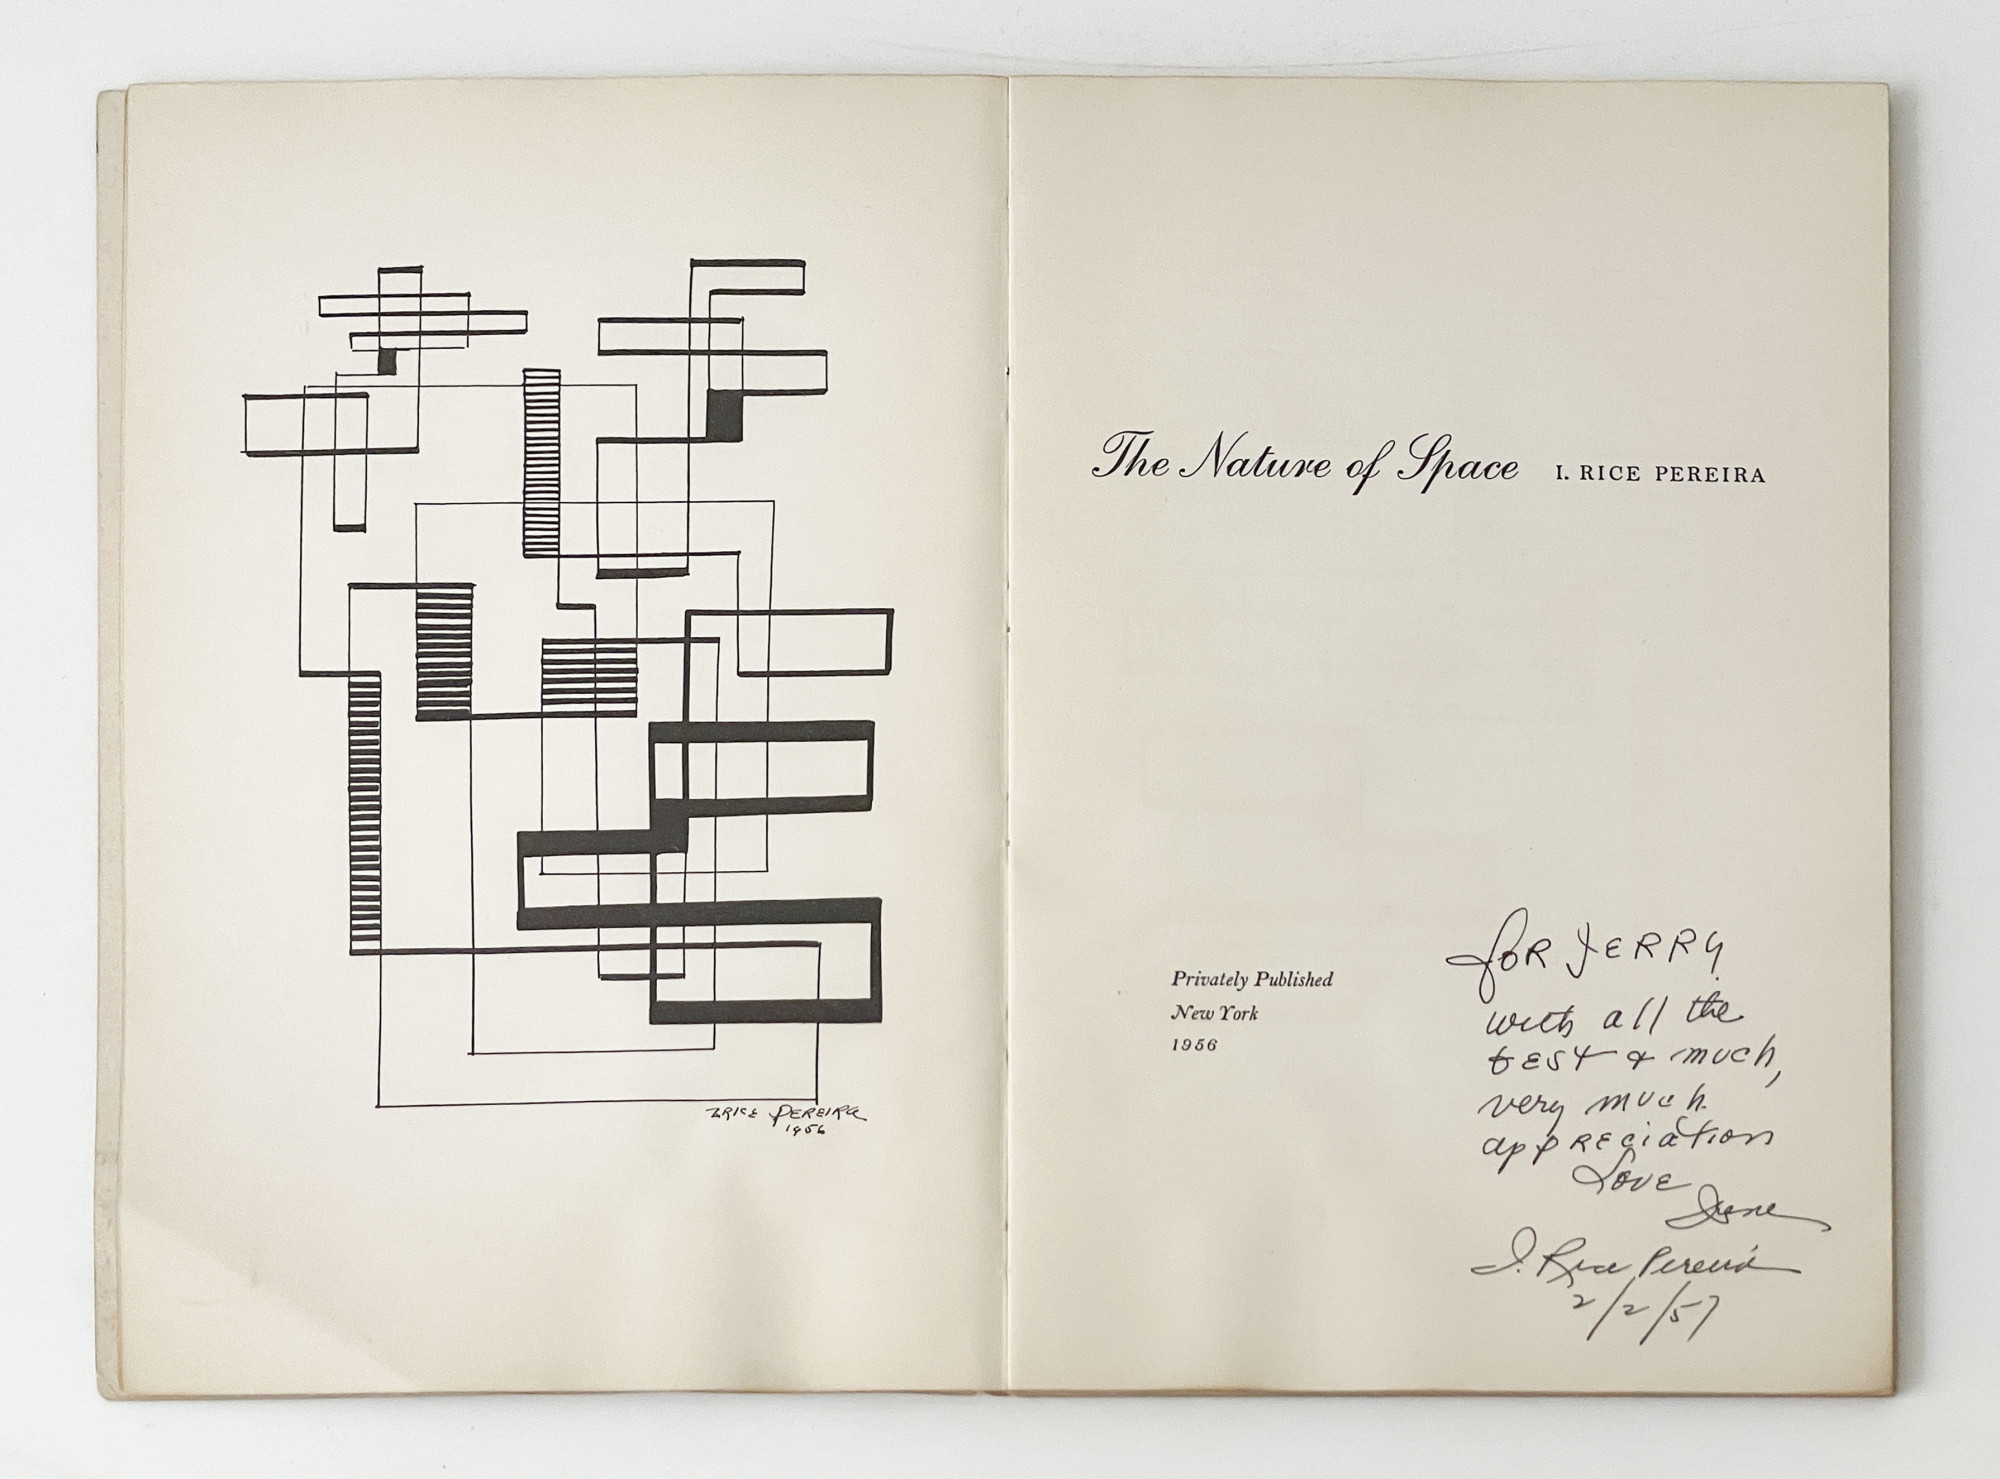 I. RICE PEREIRA
1956
The Nature of Space I. RICE PEREIRA
Privately Published
New York
1956
for JERRY
with all the
best & much,
very much
appreciation
Love
Irene
I. Rice Pereira
2/2/57